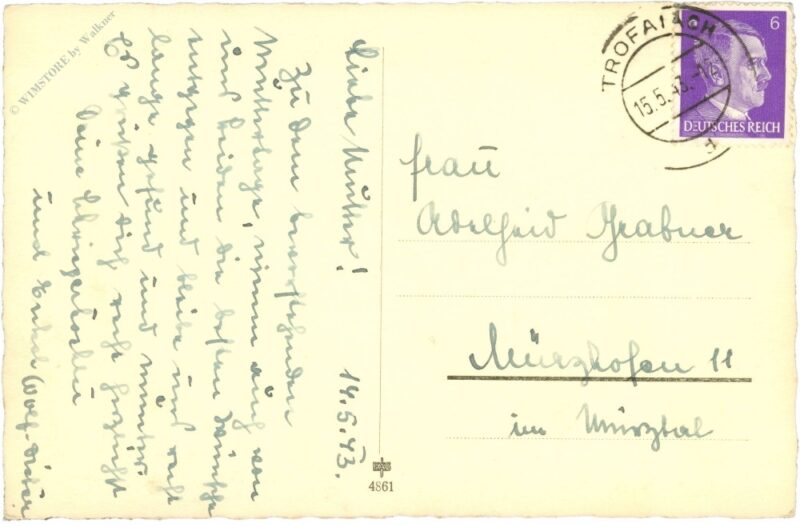 © WIMSTORE by Walkner
Liebe Mutter! 14.5.43.
Zu dem bevorstehenden
Muttertage, nimm auch von
uns beiden die besten Wünsche
entgegen und bleibe uns recht
lange gesund und munter.
Es grüßen Dich recht herzlichst
Deine Schwiegertochter
und Enkel Wolf-Dieter
TROFAIACH
15.5.43.
6
DEUTSCHES REICH
Frau
Adelheid Grabner
Mürzhofen 11
im Mürztal
4861